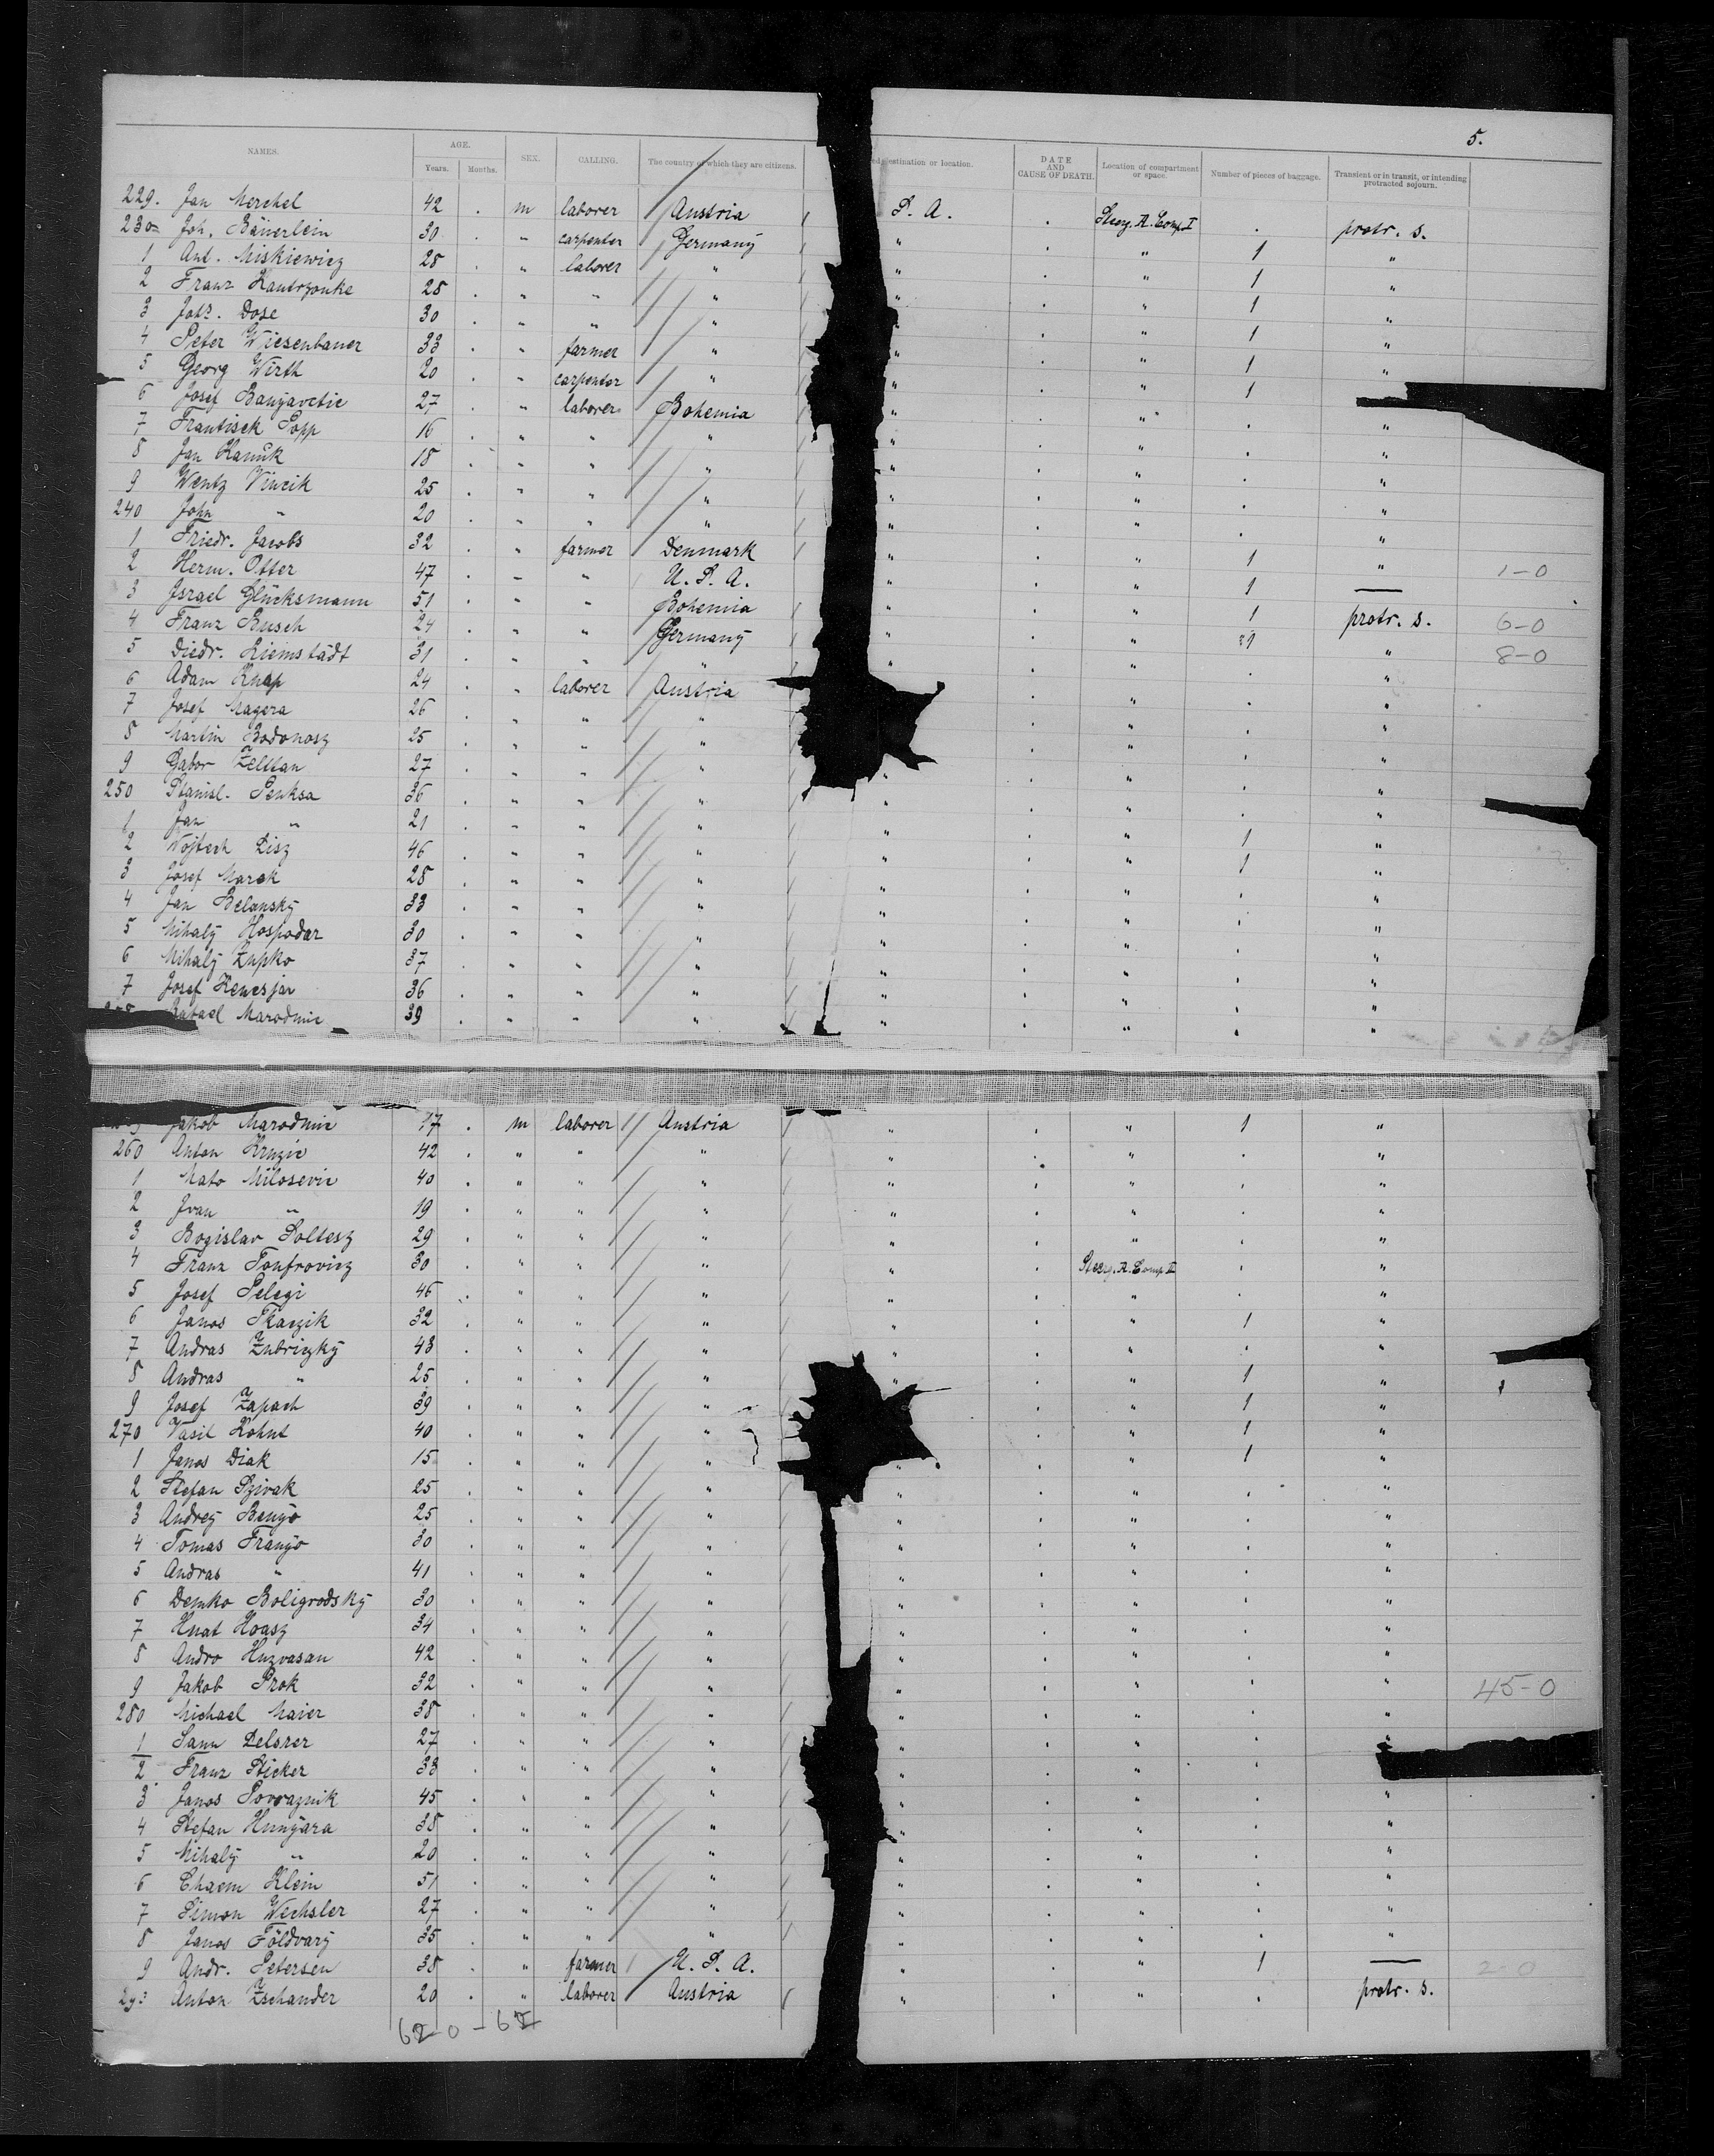 5.
NAMES. AGE. Years. Months. SEX. CALLING. The country of which they are citizens. destination or location. DATE AND CAUSE OF DEATH. Location of compartment or space. Number of pieces of baggage. Transient or in transit, or intending protracted sojourn.
229. Jan Merchel 42 . m laborer Austria S. A. . Steerg. A. Comp. I . protr. s.
230 Joh. Bäuerlein 30 . " carpenter Germany " . " 1 "
1 Ant. Miskiewicz 28 . " laborer " " . " 1 "
2 Franz Kantrzonke 28 . " " " " . " 1 "
3 Johs. Dose 30 . " " " " . " 1 "
4 Peter Wiesenbauer 33 . " farmer " " . " 1 "
5 Georg Wirth 20 . " carpenter " " . " 1
6 Josef Banyavetic 27 . " laborer Bohemia " . " . "
7 Frantisek Popp 16 . " " " " . " . "
8 Jan Hanuk 18 . " " " " . " . "
9 Wentz Vincik 25 . " " " " . " . "
240 John " 20 . " " " " . " . "
1 Friedr. Jacobs 32 . " farmer Denmark " . " 1 " 1-0
2 Herm. Otter 47 . " " U. S. A. " . " 1 —
3 Israel Glücksmann 51 . " " Bohemia " . " 1 protr. s. 6-0
4 Franz Busch 24 . " " Germany " . " 1 " 8-0
5 Diedr. Liemstädt 31 . " " " " . " . "
6 Adam Knap 24 . " laborer Austria . " . "
7 Josef Magera 26 . " " " . " . "
8 Martin Bodonosz 25 . " " " . " . "
9 Gabor Zelttan 27 . " " " " . " . "
250 Stanisl. Penksa 36 . " " " " . " . "
1 Jan " 21 . " " " " . " 1 "
2 Wojtech Lisz 46 . " " " " . " 1 "
3 Josef Marek 28 . " " " " . " . "
4 Jan Belansky 33 . " " " " . " . "
5 Mihaly Hospodar 30 . " " " " . " . "
6 Mihaly Zupko 37 . " " " " . " . "
7 Josef Kenesjar 36 . " " " " . " . "
Rafael Marodmic 39 . " " " " . " . "
Jakob Marodmic 17 . m laborer Austria " . " 1 "
260 Anton Kruzic 42 . " " " " . " . "
1 Mato Milosevic 40 . " " " " . " . "
2 Ivan " 19 . " " " " . " . "
3 Bogislav Soltesz 29 . " " " " . " . "
4 Franz Tonfrovicz 30 . " " " " . Steerg. A. Comp. II . "
5 Josef Pelegi 46 . " " " " . " . "
6 Janos Tkaczik 32 . " " " " . " 1 "
7 Andras Zubriczky 43 . " " " " . " . "
8 Andras " 25 . " " " " . " 1 "
9 Josef Zapach 39 . " " " . " 1 "
270 Vasil Kohut 40 . " " " . " 1 "
1 Janos Diak 15 . " " " " . " 1 "
2 Stefan Szivak 25 . " " " " . " . "
3 Andrej Benyo 25 . " " " " . " . "
4 Tomas Franyo 30 . " " " " . " . "
5 Andras " 41 . " " " " . " . "
6 Demko Boligrodsky 30 . " " " " . " . "
7 Hnat Hoasz 34 . " " " " . " . "
8 Andro Huzvasan 42 . " " " " . " . "
9 Jakob Prok 32 . " " " " . " . " 45-0
280 Michael Maier 38 . " " " " . " . "
1 Sann Delsrer 27 . " " " " . " . "
2 Franz Sticker 33 . " " " " . " .
3 Janos Povraznik 45 . " " " " . " . "
4 Stefan Hunyara 38 . " " " " . " . "
5 Mihaly " 20 . " " " " . " . "
6 Chaem Klein 51 . " " " " . " . "
7 Simon Wechsler 27 . " " " " . " . "
8 Janos Földvary 35 . " " " " . " . "
9 Andr. Petersen 38 . " farmer U. S. A. " . " 1 — 2-0
29 Anton Zschander 20 . " laborer Austria " . " . protr. s.